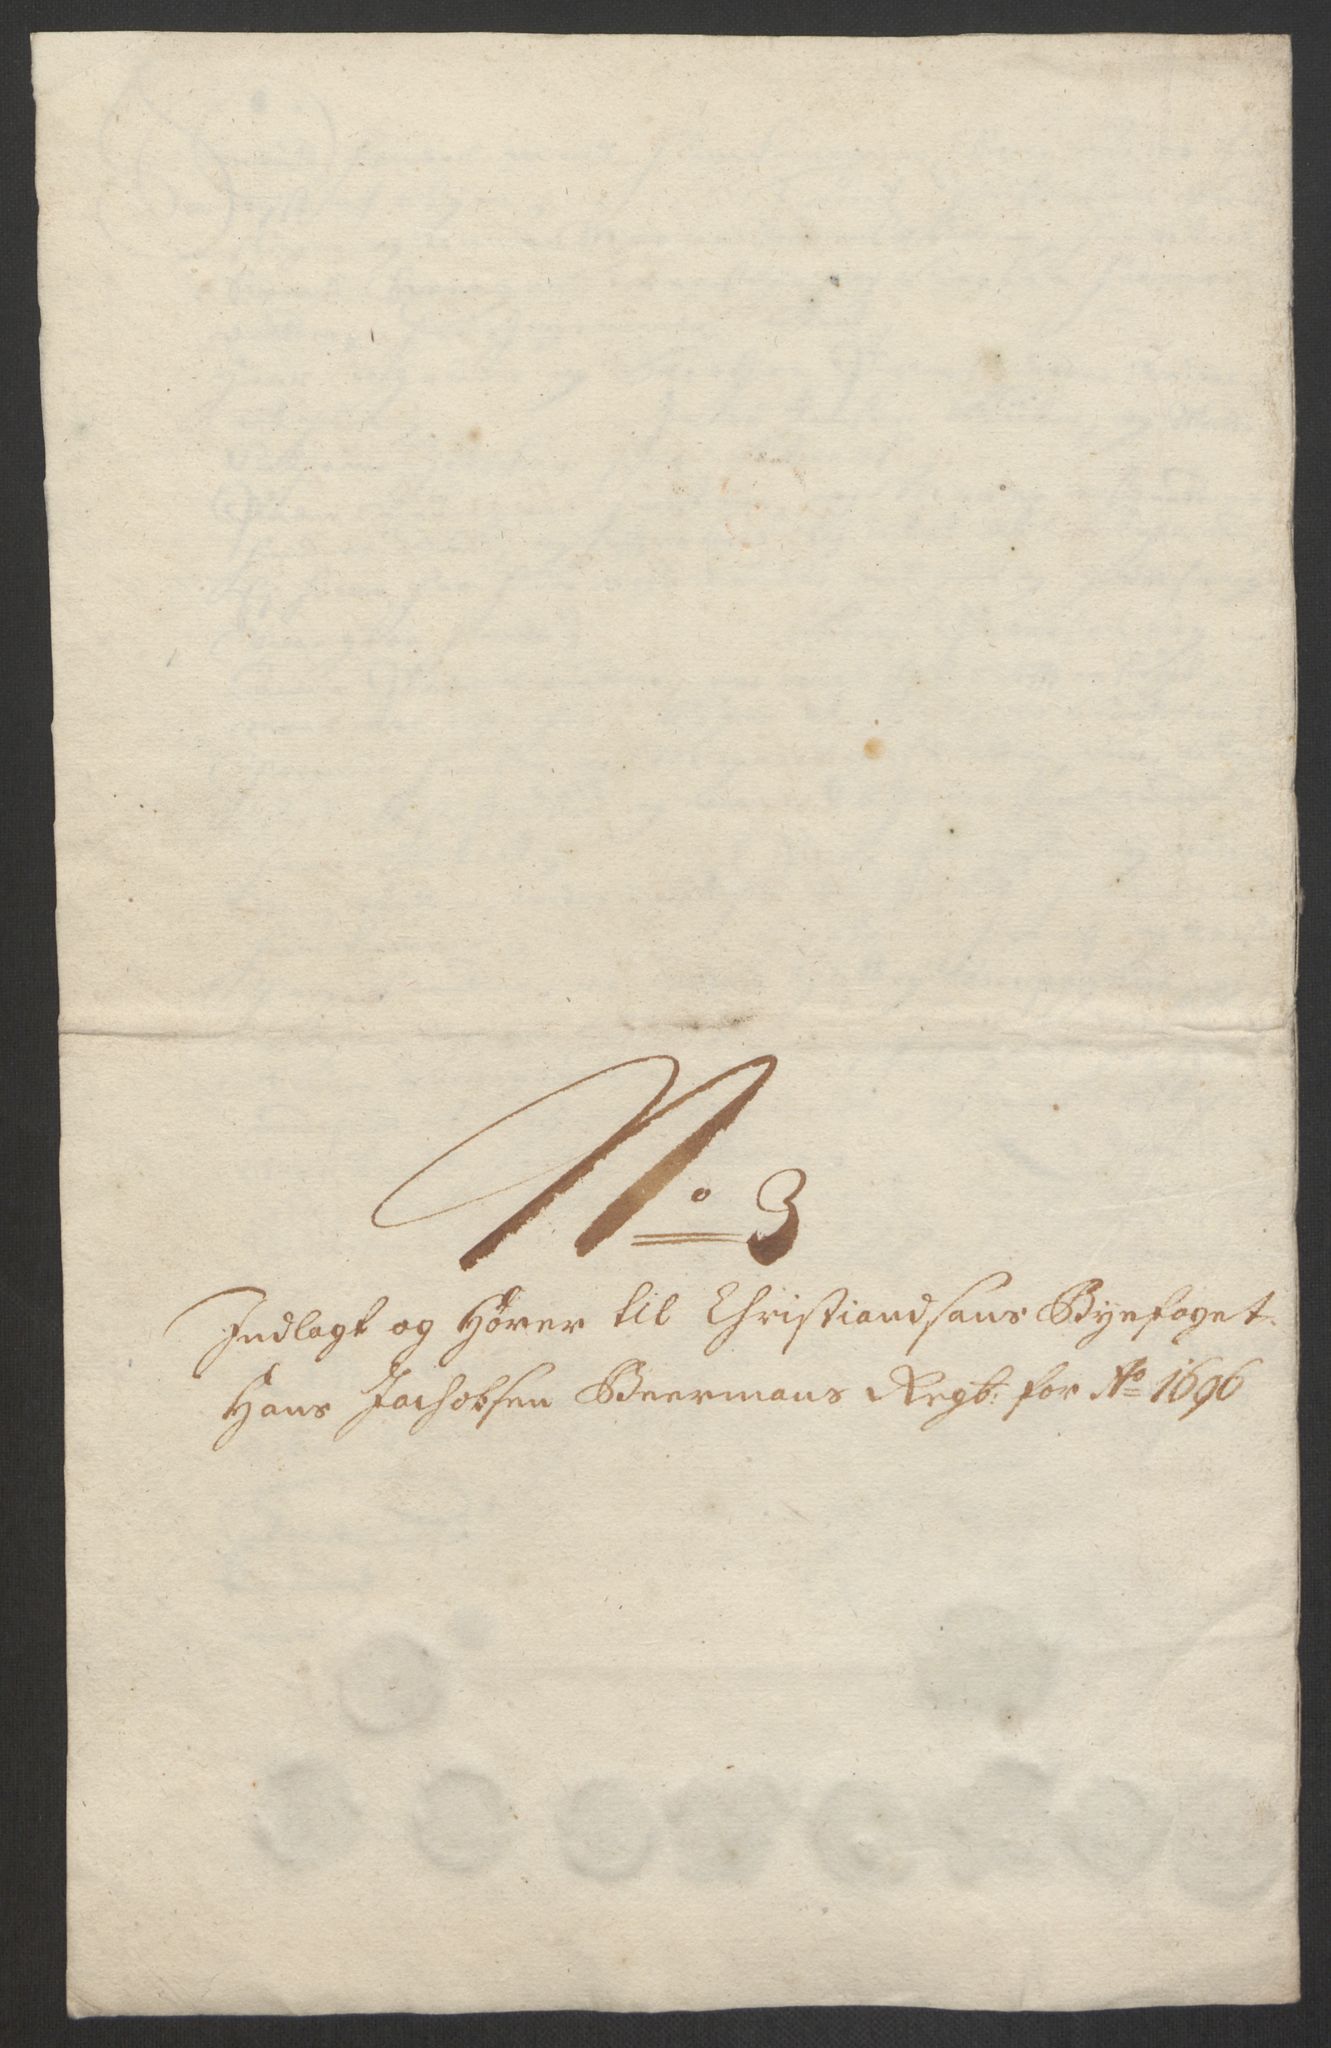 No 3
Indlagt og Hører til Christiandsans Byefoget
Hans Jachobsen Beermans Regb: for Ao 1696